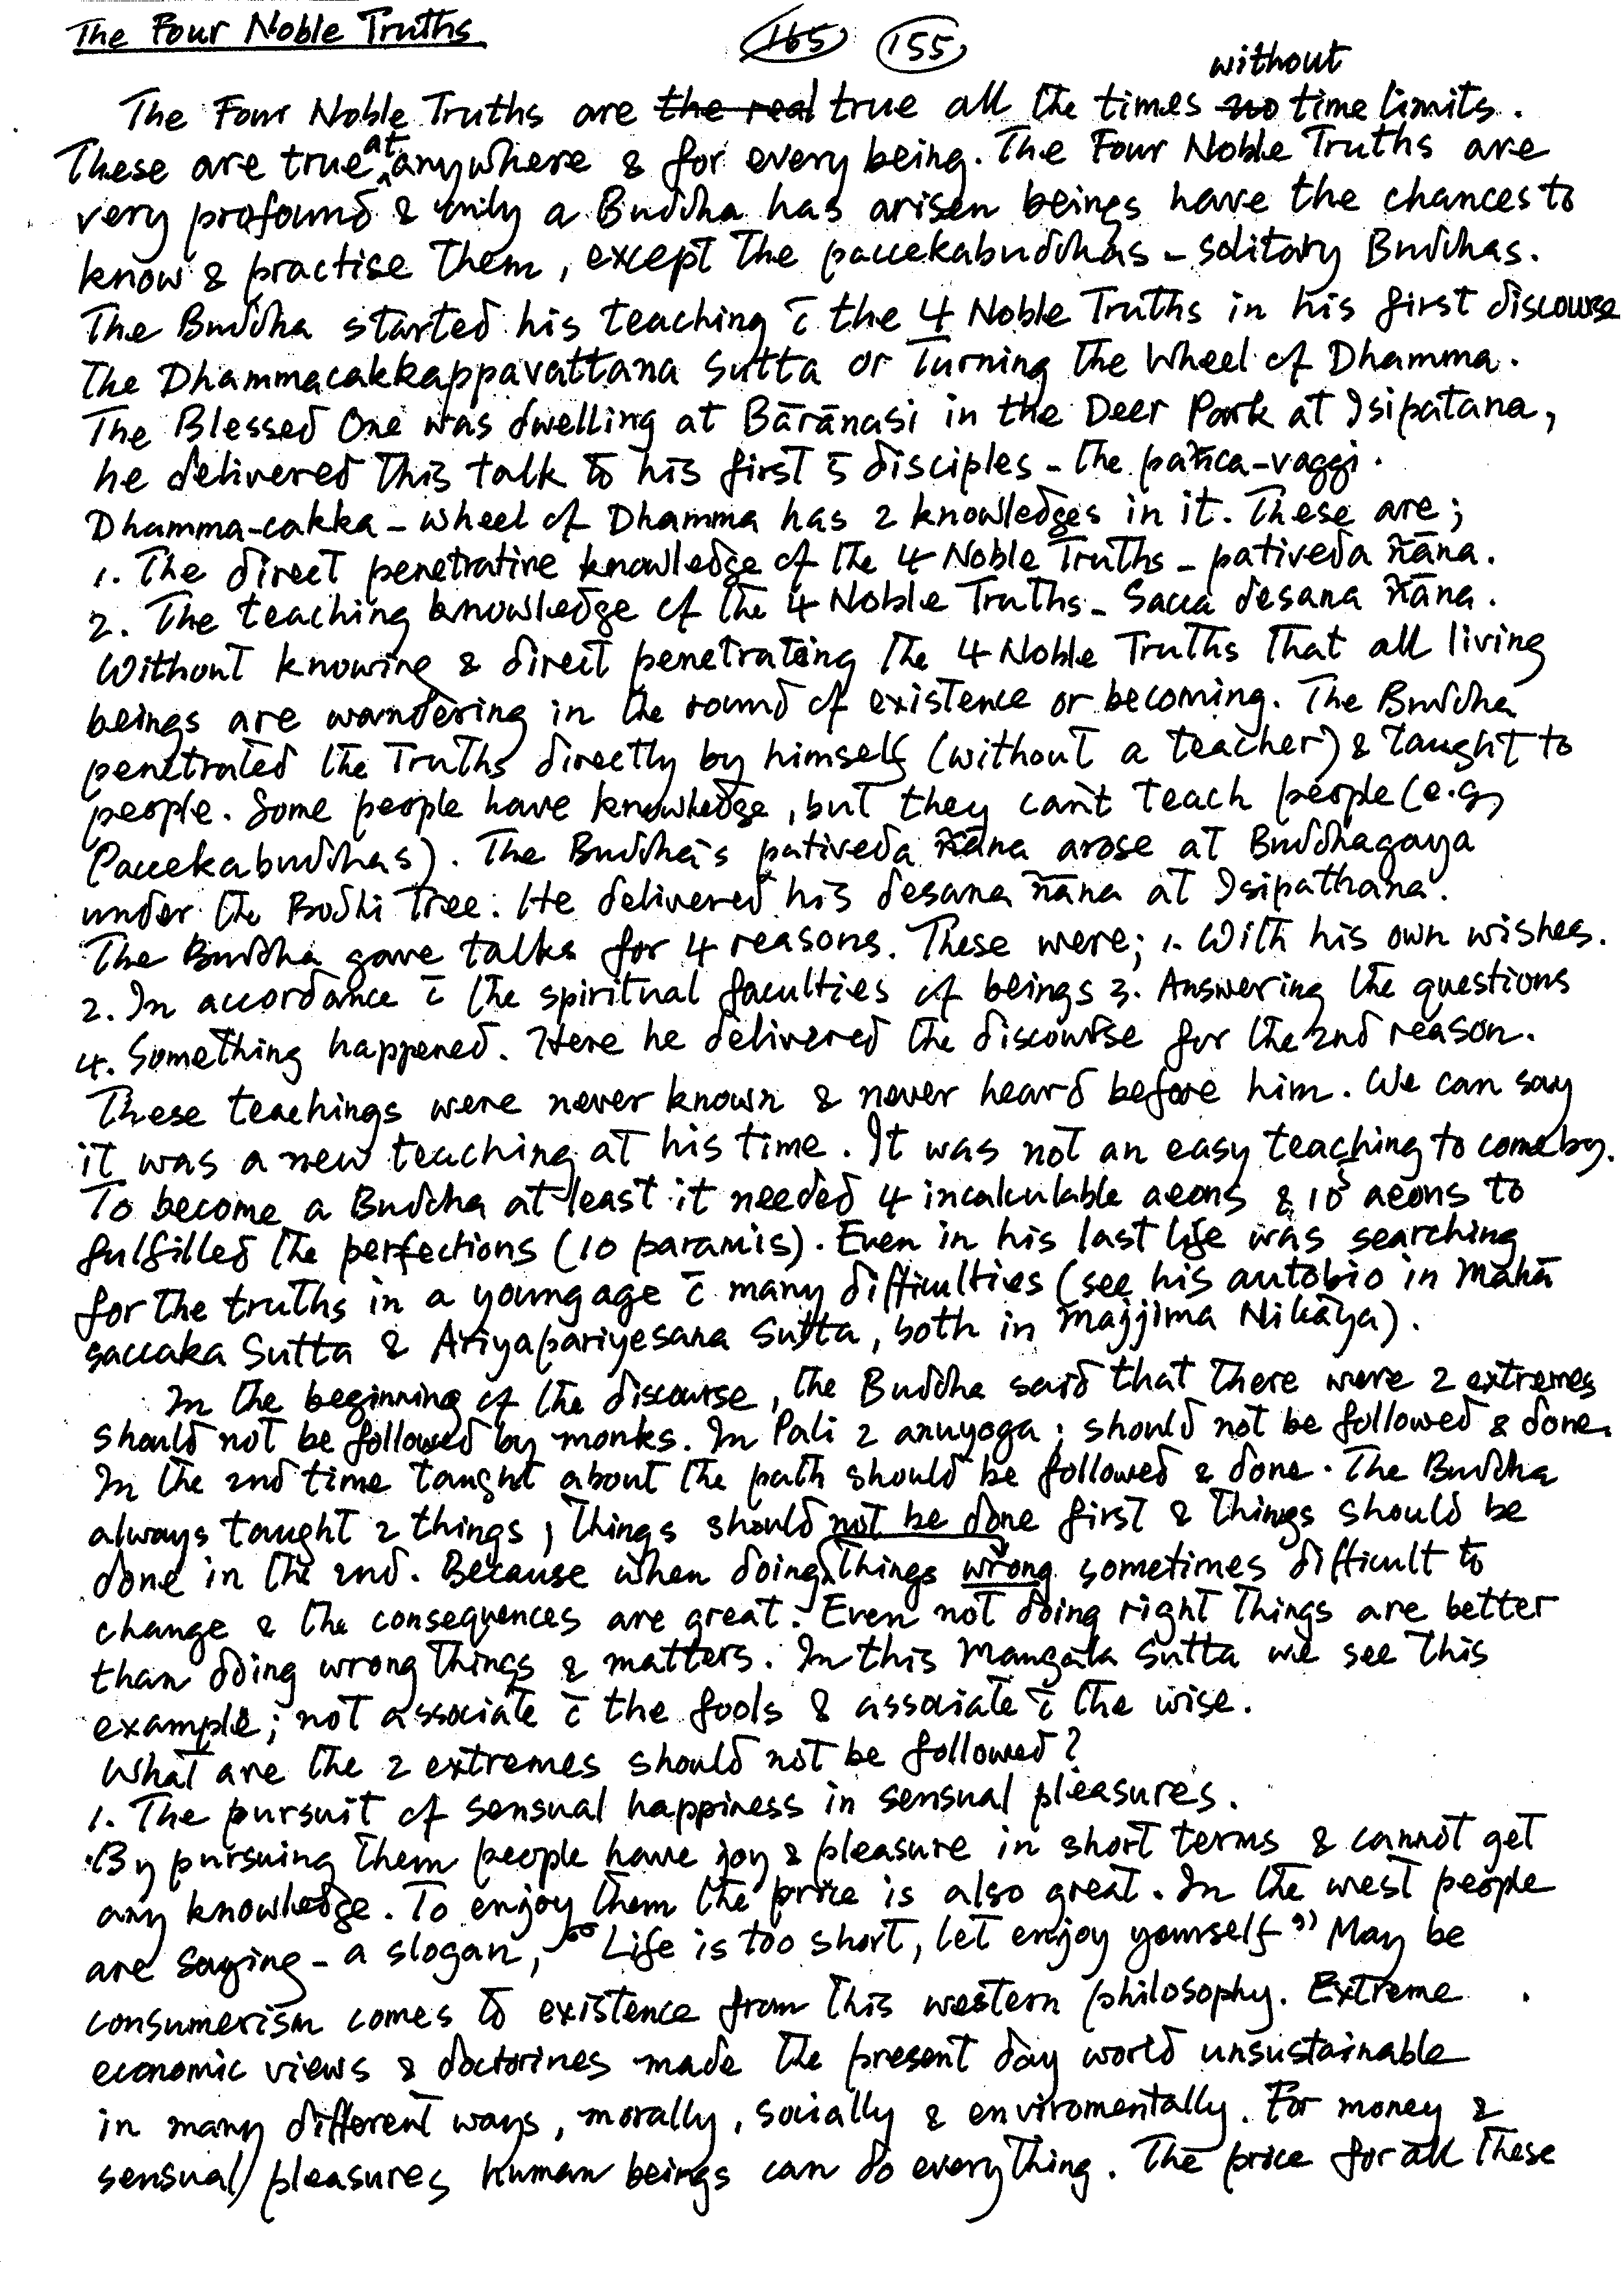 The Four Noble Truths
165 155
without
The Four Noble Truths are the real true all the times no time limits.
These are true at anywhere & for every being. The Four Noble Truths are
very profound & only a Buddha has arisen beings have the chances to
know & practise them, except the paccekabuddhas – solitary Buddhas.
The Buddha started his teaching c̄ the 4 Noble Truths in his first discourse
The Dhammacakkappavattana Sutta or Turning the Wheel of Dhamma.
The Blessed One was dwelling at Bārānasi in the Deer Park at Isipatana,
he delivered this talk to his first 5 disciples – the pañca-vaggi.
Dhamma-cakka – wheel of Dhamma has 2 knowledges in it. These are;
1. The direct penetrative knowledge of the 4 Noble Truths – pativeda ñāna.
2. The teaching knowledge of the 4 Noble Truths – Sacca desana ñāna.
Without knowing & direct penetrating the 4 Noble Truths that all living
beings are wandering in the round of existence or becoming. The Buddha
penetrated the Truths directly by himself (without a teacher) & taught to
people. Some people have knowledge, but they can't teach people (e.g,
Paccekabuddhas). The Buddha's pativeda ñāna arose at Buddhagaya
under the Bodhi Tree. He delivered his desana ñāna at Isipathana.
The Buddha gave talks for 4 reasons. These were; 1. With his own wishes.
2. In accordance c̄ the spiritual faculties of beings 3. Answering the questions
4. Something happened. Here he delivered the discourse for the 2nd reason.
These teachings were never known & never heard before him. We can say
it was a new teaching at his time. It was not an easy teaching to come by.
To become a Buddha at least it needed 4 incalculable aeons & 10⁵ aeons to
fulfilled the perfections (10 paramis). Even in his last life was searching
for the truths in a young age c̄ many difficulties (see his autobio in Mahā
saccaka Sutta & Ariyapariyesana Sutta, both in Majjima Nikāya).
In the beginning of the discourse, the Buddha said that there were 2 extremes
should not be followed by monks. In Pali 2 anuyoga; should not be followed & done.
In the 2nd time taught about the path should be followed & done. The Buddha
always taught 2 things, things should not be done first & things should be
done in the 2nd. Because when doing things wrong sometimes difficult to
change & the consequences are great. Even not doing right things are better
than doing wrong things & matters. In this Mangala Sutta we see this
example; not associate c̄ the fools & associate c̄ the wise.
What are the 2 extremes should not be followed?
1. The pursuit of sensual happiness in sensual pleasures.
By pursuing them people have joy & pleasure in short terms & cannot get
any knowledge. To enjoy them the price is also great. In the west people
are saying – a slogan, "Life is too short, let enjoy yourself" May be
consumerism comes to existence from this western philosophy. Extreme
economic views & doctorines made the present day world unsustainable
in many different ways, morally, socially & enviromentally. For money &
sensual pleasures human beings can do everything. The price for all these